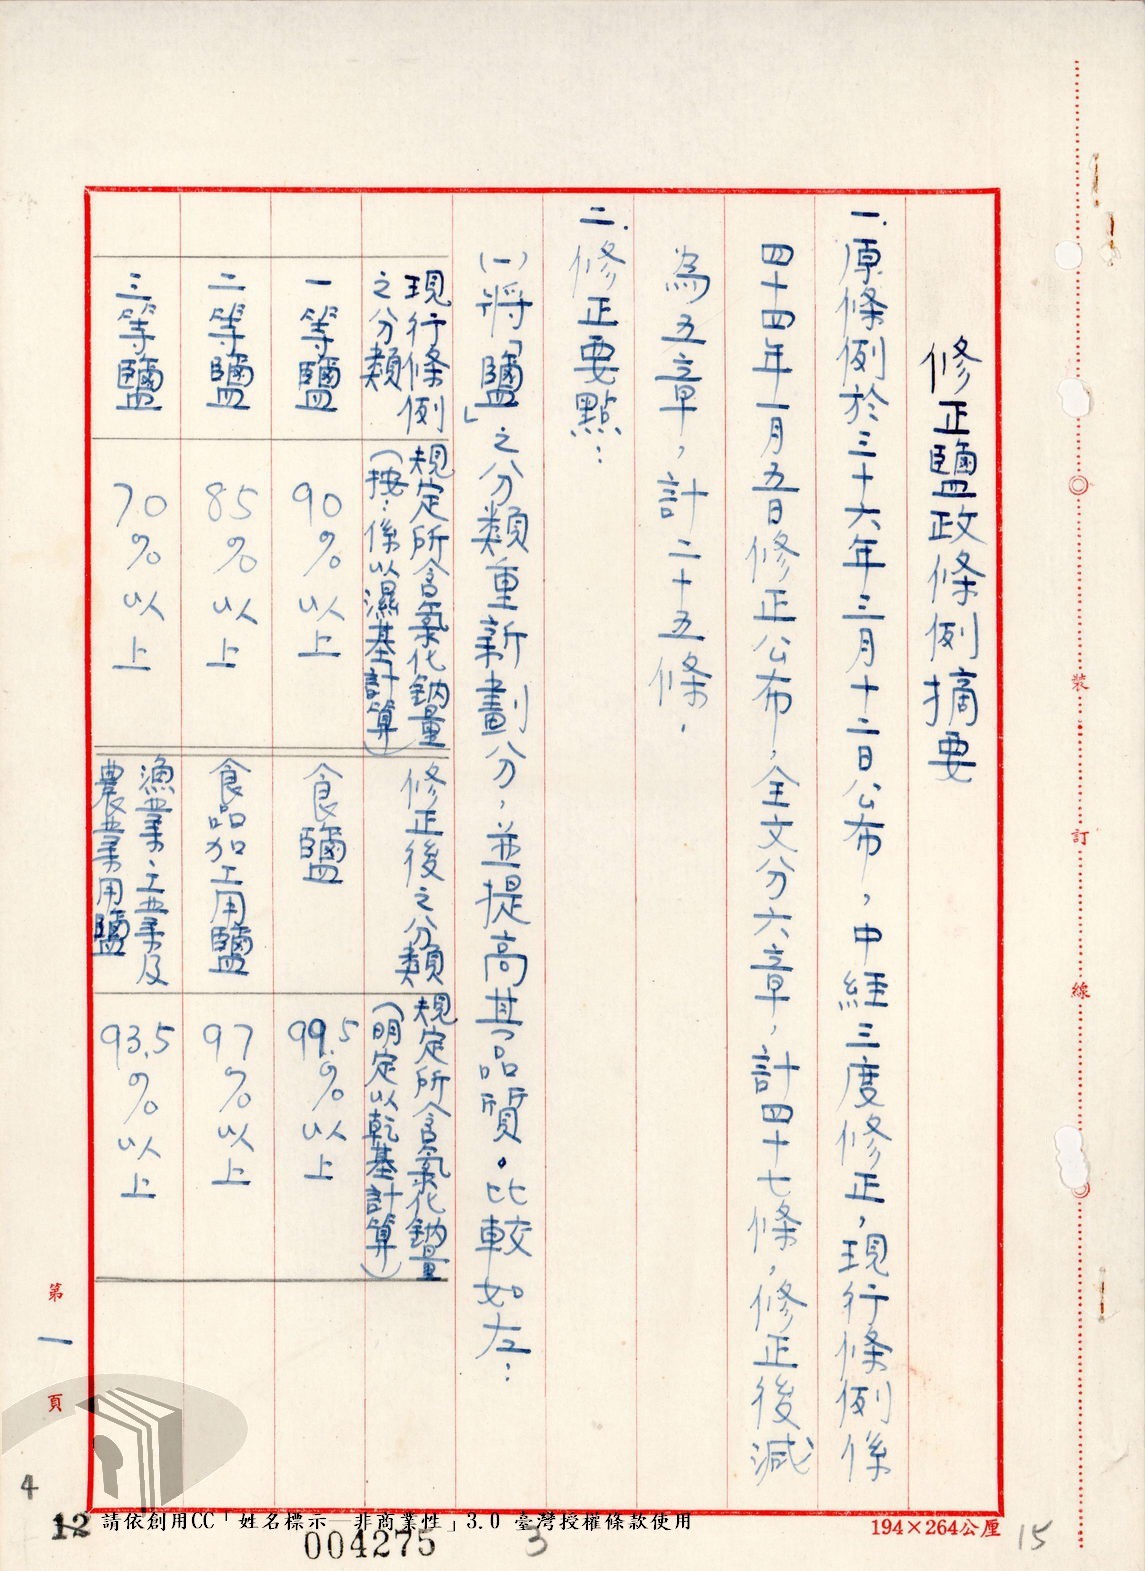 修正鹽政條例摘要
一.原條例於三十六年三月十二日公布，中經三度修正，現行條例係
四十四年一月五日修正公布，全文分六章，計四十七條，修正後減
為五章，計二十五條．
二.修正要點：
㈠將「鹽」之分類重新劃分，並提高其品質。比較如左：
現行條例
之分類
規定所含氯化鈉量
(按：係以濕基計算)
修正後之分類
規定所含氯化鈉量
(明定以乾基計算)
一等鹽
90％以上
食鹽
99.5％以上
二等鹽
85％以上
食品加工用鹽
97％以上
三等鹽
70％以上
漁業、工業及
農業用鹽
93.5％以上
裝
訂
線
第一頁
4
12
請依創用CC「姓名標示－非商業性」3.0 臺灣授權條款使用
004275
3
194×264公厘
15